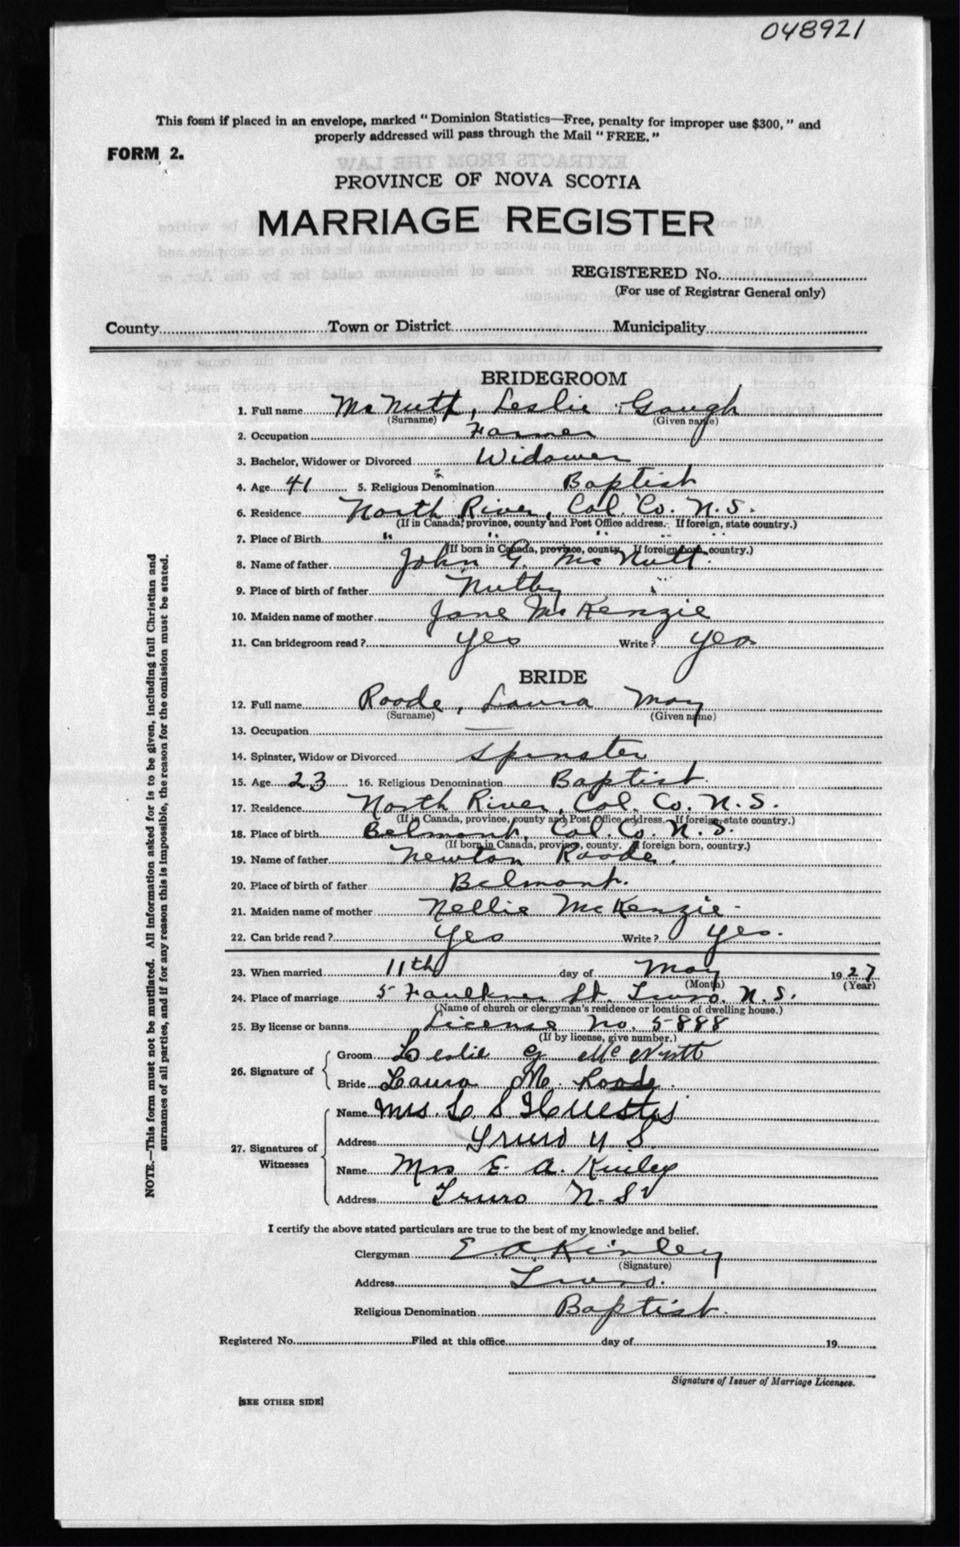 048921
This form if placed in an envelope, marked "Dominion Statistics—Free, penalty for improper use $300," and
properly addressed will pass through the Mail "FREE."
FORM 2.
PROVINCE OF NOVA SCOTIA
MARRIAGE REGISTER
REGISTERED No.
(For use of Registrar General only)
County Town or District Municipality
BRIDEGROOM
1. Full name McNutt, Leslie Gough
(Surname) (Given name)
2. Occupation Farmer
3. Bachelor, Widower or Divorced Widower
4. Age 41 5. Religious Denomination Baptist
6. Residence North River, Col. Co. N.S.
(If in Canada, province, county and Post Office address. If foreign, state country.)
7. Place of Birth " " " " "
(If born in Canada, province, county. If foreign born, country.)
8. Name of father John G. McNutt.
9. Place of birth of father Nutby
10. Maiden name of mother Jane McKenzie
11. Can bridegroom read? Yes Write? Yes
BRIDE
12. Full name Roode, Laura May
(Surname) (Given name)
13. Occupation —
14. Spinster, Widow or Divorced Spinster
15. Age 23 16. Religious Denomination Baptist.
17. Residence North River, Col. Co. N.S.
(If in Canada, province, county and Post Office address. If foreign, state country.)
18. Place of birth Belmont, Col. Co. N.S.
(If born in Canada, province, county. If foreign born, country.)
19. Name of father Newton Roode.
20. Place of birth of father Belmont.
21. Maiden name of mother Nellie McKenzie
22. Can bride read? Yes Write? Yes.
23. When married 11th day of May 1927
(Month) (Year)
24. Place of marriage 5 Faulkner St. Truro, N.S.
(Name of church or clergyman's residence or location of dwelling house.)
25. By license or banns License No. 5888
(If by license, give number.)
26. Signature of Groom Leslie G McNutt
Bride Laura M. Roode.
27. Signatures of Witnesses Name Mrs. L S Huestis
Address Truro N S.
Name Mrs E. A. Kinley
Address Truro N. S
I certify the above stated particulars are true to the best of my knowledge and belief.
Clergyman E. A Kinley
(Signature)
Address Truro.
Religious Denomination Baptist.
Registered No. Filed at this office day of 19
Signature of Issuer of Marriage Licenses.
[SEE OTHER SIDE]
NOTE.—This form must not be mutilated. All information asked for is to be given, including full Christian and
surnames of all parties, and if for any reason this is impossible, the reason for the omission must be stated.